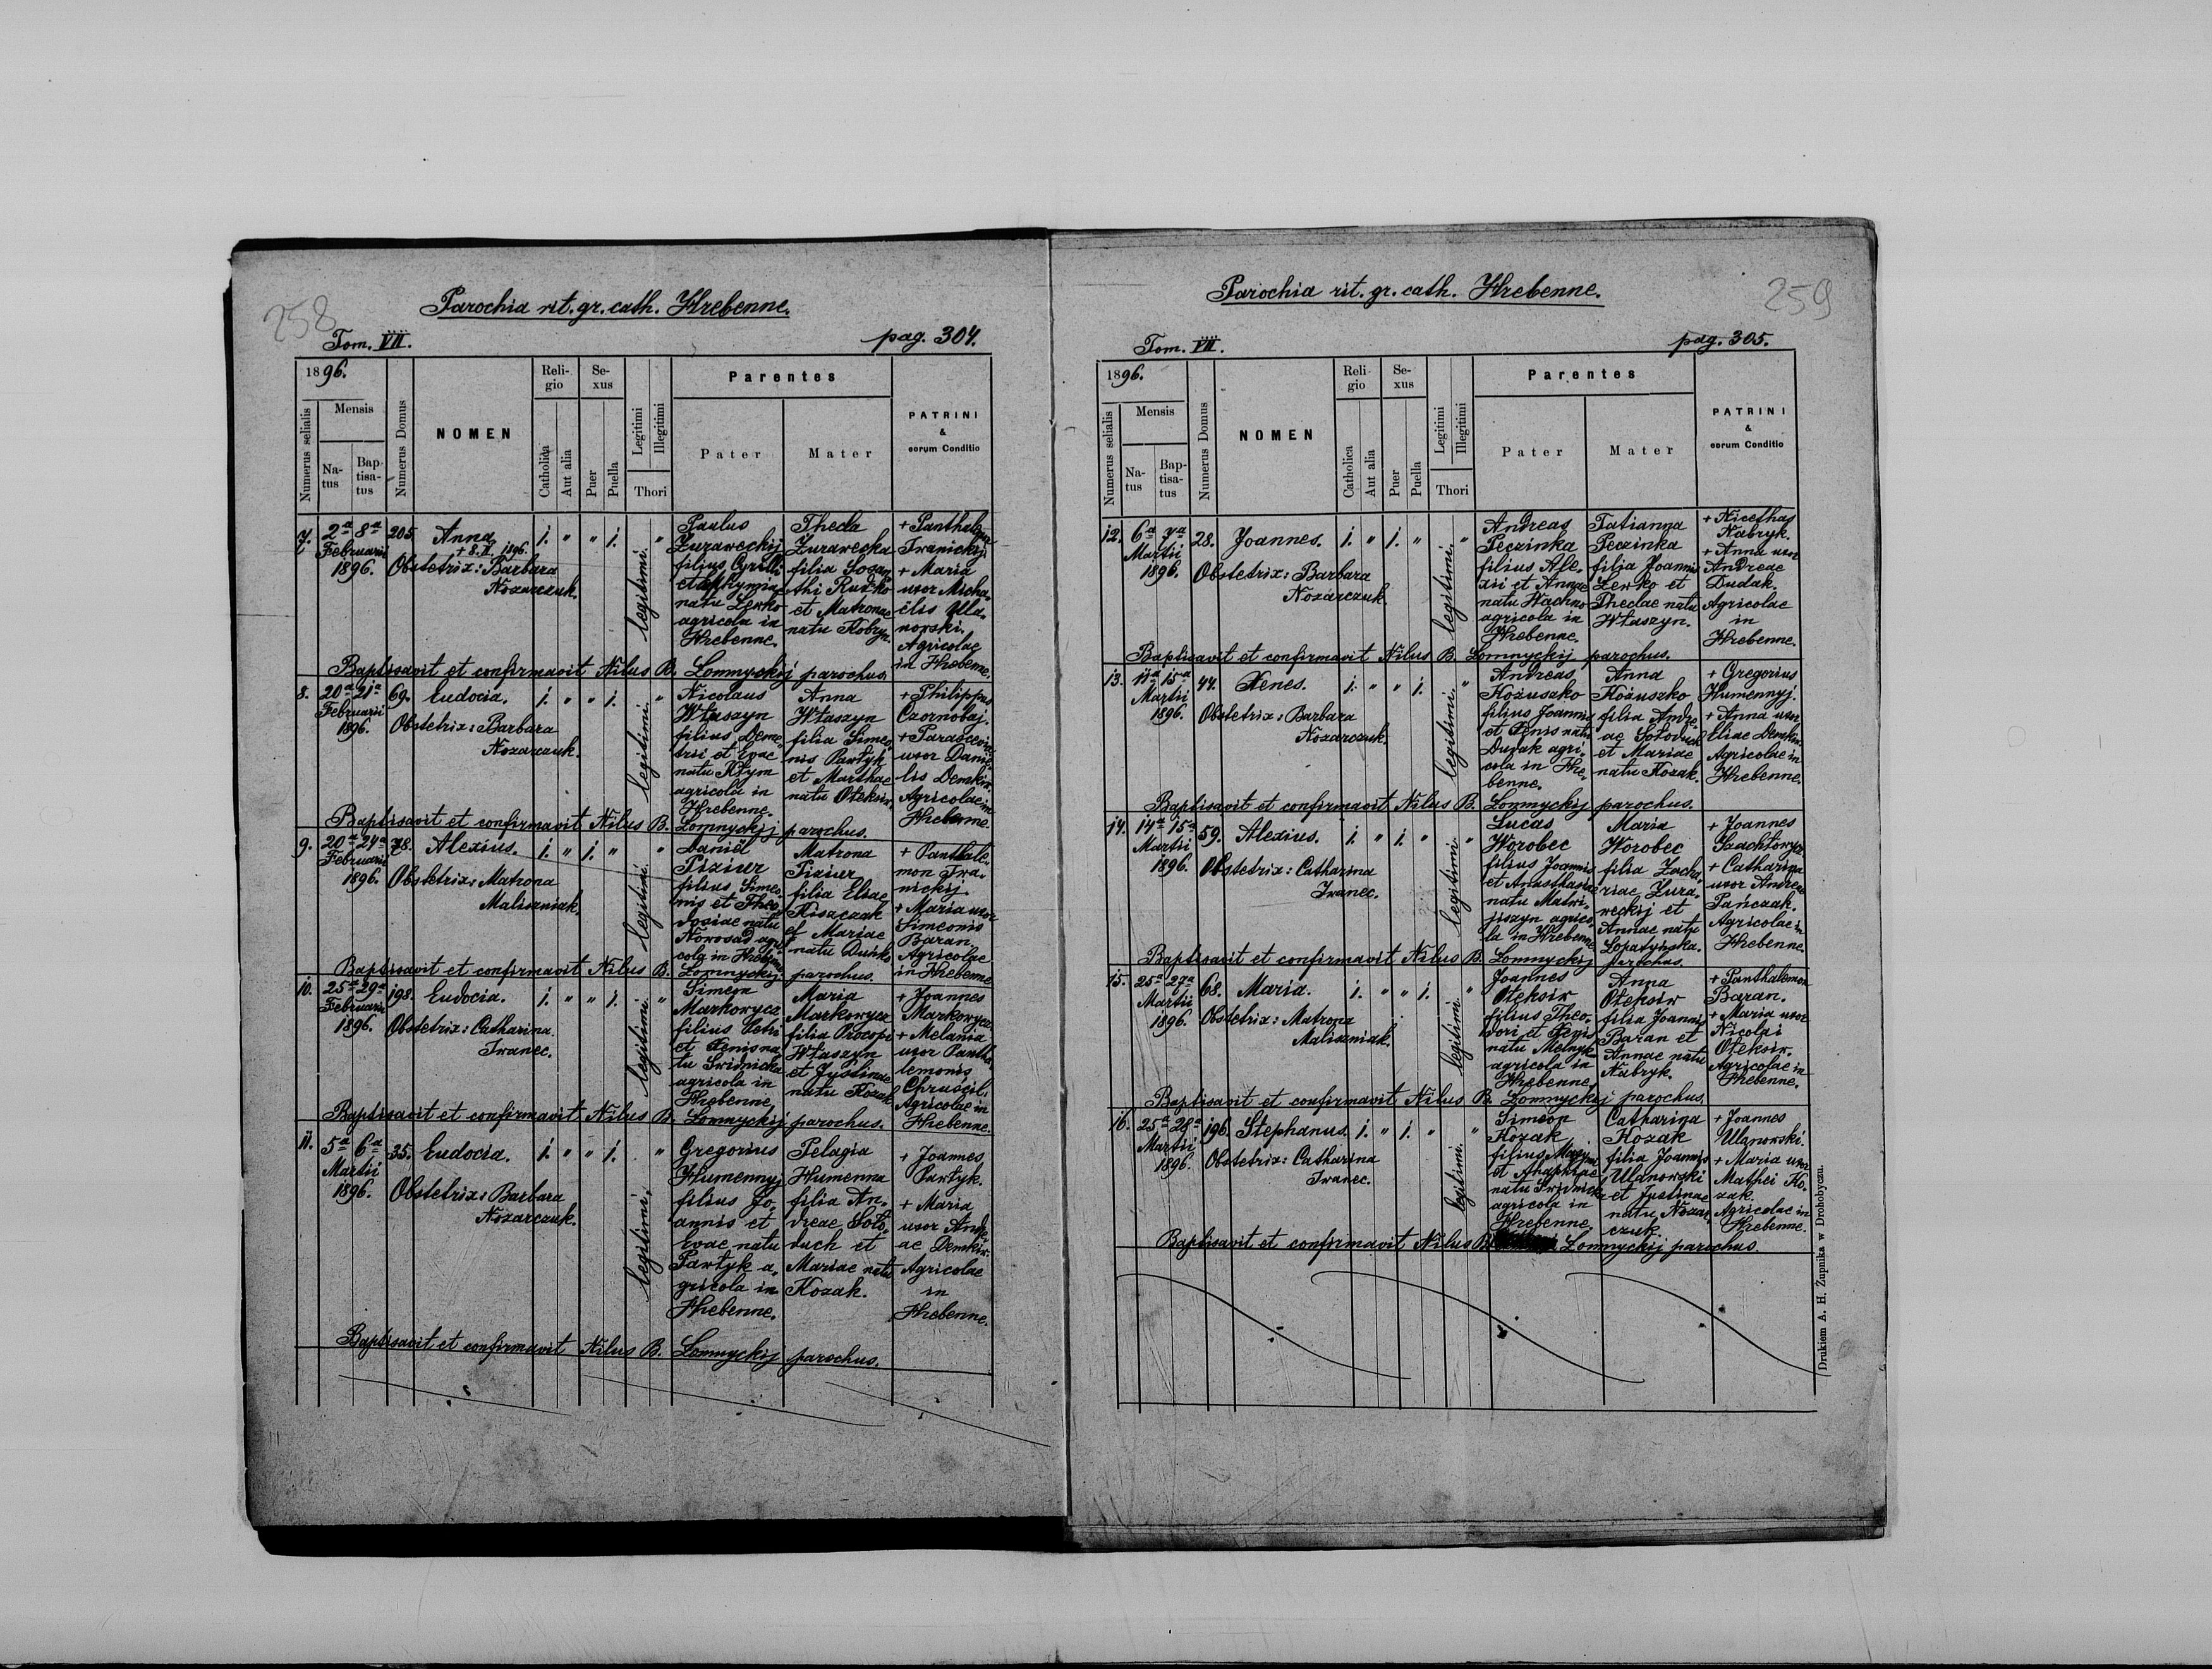 258
Parochia rit. gr. cath. Hrebenne.
Tom. VII.
pag. 304.
1896.
Numerus serialis
Mensis
Na-
tus
Bap-
tisa-
tus
Numerus Domus
NOMEN
Reli-
gio
Catholica
Aut alia
Se-
xus
Puer
Puella
Legitimi
Illegitimi
Thori
Parentes
Pater
Mater
PATRINI
&
eorum Conditio
7. 2a 8a 205. Anna 1. " " 1. "
+ 8.II. 1896.
Februarii
1896.
Obstetrix: Barbara
Nozarczuk.
legitimi.
Paulus
Żuraweckij
filius Cyrilli
natu Lewko
agricola in
Hrebenne.
Thecla
Żurawecka
filia Josap
thi Ruszko
et Matronae
natu Kobryn.
Iwanickij
+ Maria
uxor Micha-
ëlis Ula-
nowski.
Agricolae
in Hrebenne.
Baptisavit et confirmavit Nilus B. Łomnyckij parochus.
8. 20a 21a 69. Eudocia. 1. " " 1. "
Februarii
1896.
Obstetrix: Barbara
Nozarczuk.
legitimi.
Nicolaus
Właszyn
filius Deme-
trii et Evae
natu Kłym
agricola in
Hrebenne.
Anna
Właszyn
filia Simeo-
nis Pawłyk
et Marthae
natu Ołeksiw.
+ Philippus
Czornobaj.
+ Parascevia
uxor Danie-
lis Demkiw.
Agricolae in
Hrebenne.
Baptisavit et confirmavit Nilus B. Łomnyckij parochus.
9. 20a 24a 78. Alexius. 1. " 1. " "
Februarii
1896.
Obstetrix: Matrona
Maliszniak.
legitimi.
Daniël
Piziur
filius Simeo-
nis et Theo-
dosiae natu
Nowosad agri-
cola in Hrebenne.
Matrona
Piziur
filia Eliae
Kisaczak
et Mariae
natu Duńko
+ Panthale-
mon Iwa-
nickij.
+ Maria uxor
Simeonis
Baran.
Agricolae
in Hrebenne
Baptisavit et confirmavit Nilus B. Łomnyckij parochus.
10. 25a 29a 198. Eudocia. 1. " " 1. "
Februarii
1896.
Obstetrix: Catharina
Iwanec.
legitimi.
Simeon
Markowycz
filius Petri
et Xenis na-
tu Świdnicka
agricola in
Hrebenne.
Maria
Markowycz
filia Procopi
Właszyn
et Justinae
natu Kozak
+ Joannes
Markowycz
+ Melania
uxor Pantha-
lemonis
Chruścil.
Agricolae in
Hrebenne.
Baptisavit et confirmavit Nilus B. Łomnyckij parochus.
11. 5a 6a 35. Eudocia. 1. " " 1. "
Martii
1896.
Obstetrix: Barbara
Nozarczuk.
legitimi.
Gregorius
Humennyj
filius Jo-
annis et
Evae natu
Pawłyk a-
gricola in
Hrebenne.
Pelagia
Humenna
filia An-
dreae Soło-
duch et
Mariae natu
Kozak.
+ Joannes
Pawłyk.
+ Maria
uxor Andre-
ae Demkiw.
Agricolae
in
Hrebenne.
Baptisavit et confirmavit Nilus B. Łomnyckij parochus.
259
Parochia rit. gr. cath. Hrebenne.
Tom. VII.
pag. 305.
1896.
Numerus serialis
Mensis
Na-
tus
Bap-
tisa-
tus
Numerus Domus
NOMEN
Reli-
gio
Catholica
Aut alia
Se-
xus
Puer
Puella
Legitimi
Illegitimi
Thori
Parentes
Pater
Mater
PATRINI
&
eorum Conditio
12. 6a 7a 28. Joannes. 1. " 1. " "
Martii
1896.
Obstetrix: Barbara
Nozarczuk.
legitimi.
Andreas
Peczinka
filius Ale-
xii et Annae
natu Wachno
agricola in
Hrebenne.
Tatianna
Peczinka
filia Joannis
Lewko et
Theclae natu
Właszyn.
+ Nicethas
Nabryk.
+ Anna uxor
Andreae
Dudak.
Agricolae
in
Hrebenne.
Baptisavit et confirmavit Nilus B. Łomnyckij parochus.
13. 11a 15a 44. Xenes. 1. " " 1. "
Martii
1896.
Obstetrix: Barbara
Nozarczuk.
legitimi.
Andreas
Kożuszko
filius Joannis
et Xenis natu
Dudak agri-
cola in Hre-
benne.
Anna
Kożuszko
filia Andre-
ae Sołoduch
et Mariae
natu Kozak.
+ Gregorius
Humennyj.
+ Anna uxor
Eliae Demkiw.
Agricolae in
Hrebenne.
Baptisavit et confirmavit Nilus B. Łomnyckij parochus.
14. 14a 15a 59. Alexius. 1. " 1. " "
Martii
1896.
Obstetrix: Catharina
Iwanec.
legitimi.
Lucas
Worobec
filius Joannis
et Anasthasiae
natu Matwi-
jiszyn agrico-
la in Hrebenne
Maria
Worobec
filia Zacha-
riae Żura-
weckij et
Annae natu
Łopatyńska.
+ Joannes
Szachtowycz
+ Catharina
uxor Andreae
Pańczak.
Agricolae in
Hrebenne.
Baptisavit et confirmavit Nilus B. Łomnyckij parochus.
15. 25a 27a 68. Maria. 1. " " 1. "
Martii
1896.
Obstetrix: Matrona
Maliszniak.
legitimi.
Joannes
Ołeksiw
filius Theo-
dori et Xenis
natu Melnyk
agricola in
Hrebenne.
Anna
Ołeksiw
filia Joannis
Baran et
Annae natu
Nabryk.
+ Panthalemon
Baran.
+ Maria uxor
Nicolai
Ołeksiw.
Agricolae in
Hrebenne.
Baptisavit et confirmavit Nilus B. Łomnyckij parochus.
16. 25a 28a 196. Stephanus. 1. " 1. " "
Martii
1896.
Obstetrix: Catharina
Iwanec.
legitimi.
Simeon
Kozak
filius Maximi
et Anaphiae
natu Świdnicka
agricola in
Hrebenne.
Catharina
Kozak
filia Joannis
Ulanowski
et Justinae
natu Nozar-
czuk.
+ Joannes
Ulanowski.
+ Maria uxor
Mathei Ko-
zak.
Agricolae in
Hrebenne.
Baptisavit et confirmavit Nilus B. Łomnyckij parochus.
Drukiem A. H. Żupnika w Drohobyczu.